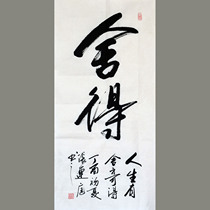 舍得
人生有
舍方得
丁酉初夏